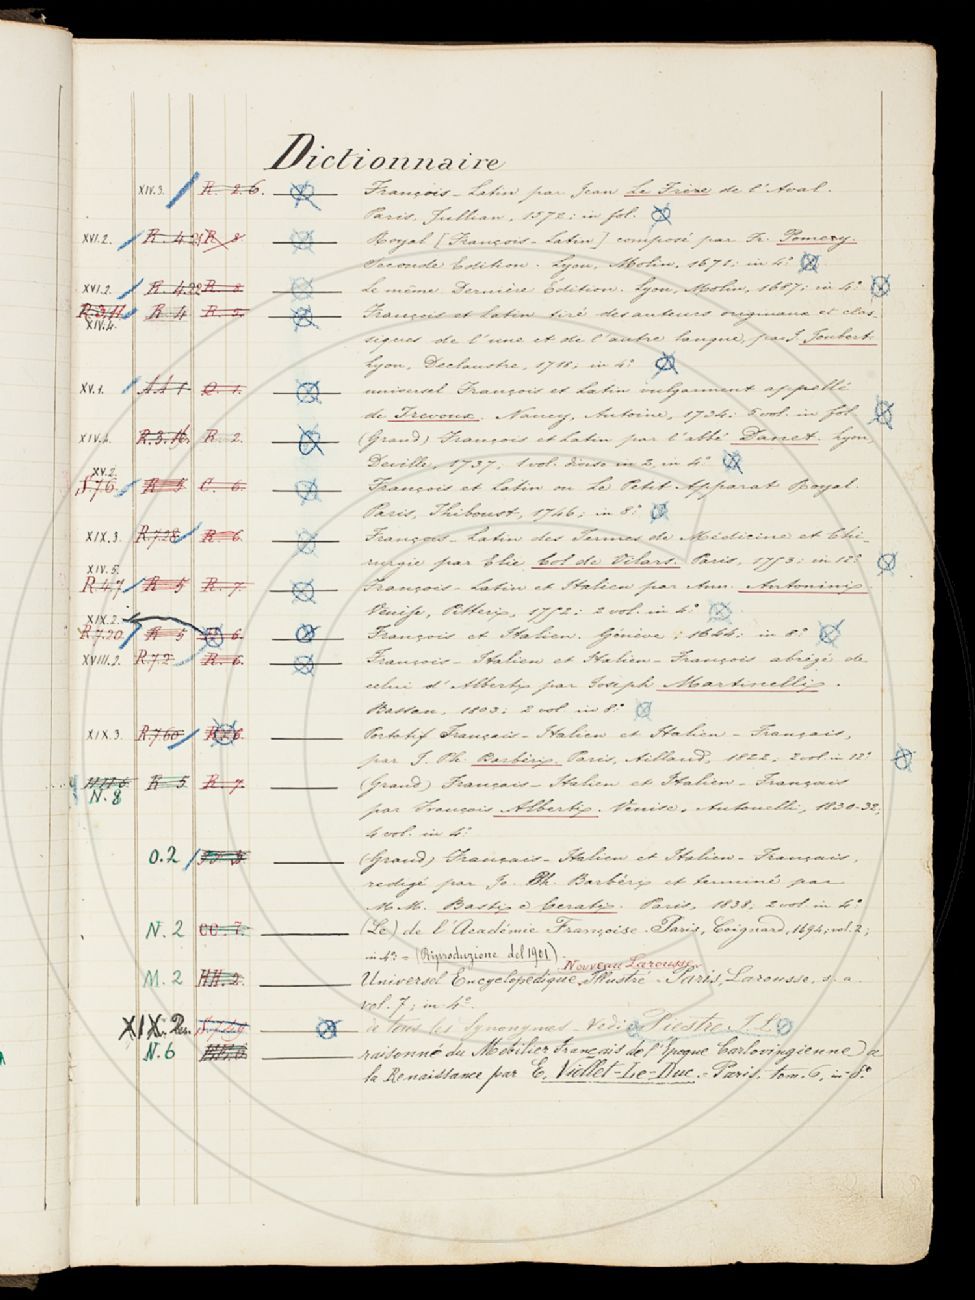 Dictionnaire
XIV.3. R. 2.6. François-Latin par Jean Le Frère de l'Aval.
Paris, Jullian, 1572; in fol.
XVI.2. R. 4.2 R. 8 Royal [François-Latin] composé par Fr. Pomery.
Seconde Edition. Lyon, Molin, 1671; in 4°
XVI.2. R. 4.22 R. 8 Le même Dernière Edition. Lyon, Molin, 1687; in 4°
R.3.11 R. 4 R. 5. François et Latin tiré des auteurs originaux et clas-
XIV.4.
siques de l'une et de l'autre langue, par J Joubert.
Lyon, Declaustre, 1718; in 4°
XV.1. universel François et Latin vulgairment appellé
de Trevoux. Nancy, Antoine, 1734; 5 vol. in fol
XIV.4. R.3.16. R. 2. (Grand) François et Latin par l'Abbé Danet. Lyon,
Deville, 1737, 1 vol. diviso in 2, in 4°
XV.2.
S 7 6 R 5 C. 6. François et Latin ou Le Petit Apparat Royal.
Paris, Thiboust, 1746; in 8°
XIX.3. R.7.28 R. 6. François-Latin des Termes de Médicine et Chi-
rurgie par Elie Col de Vilars. Paris, 1753; in 12°
XIV.5.
R 4.7 R 5 R. 7. François-Latin et Italien par Ann. Antonini
Venise, Pitteri, 1752; 2 vol. in 4°
XIX.2.
R 7.20. R 5 6. François et Italien. Génève; 1644; in 8°
XVIII.2. R.7.2 R. 6. François-Italien et Italien-François abrégé de
celui d'Alberti par Joseph Martinelli.
Bassan, 1803; 2 vol in 8°
XIX.3. R.7.60 Portatif Français-Italien et Italien-Français,
par J. Ph. Barbéri. Paris, Aillaud, 1822; 2 vol in 12°
R 5 R. 7. (Grand) Français-Italien et Italien-Français
N. 8
par François Alberti. Venise, Antonelli, 1830-32;
4 vol. in 4°
O.2 (Grand) Français-Italien et Italien-Français,
redigé par Jo. Ph. Barbéri et terminé par
M.M. Basti e Cerati. Paris, 1838, 2 vol. in 4°
N. 2 CC. 7. (Le) de l'Académie Françoise. Paris, Coignard, 1694; vol. 2;
in 4° = (Riproduzione del 1901)
Nouveau Larousse
M. 2 HH. 2. Universel Encyclopédique, Illustré - Paris, Larousse, s. a.
vol. 7; in 4°
XIX.2. à tous les Synonymes - Vedi Piestre J. L.
N. 6 raisonné du Mobilier Français de l'Epoque Carlovingienne a
la Renaissance par E. Viollet-Le-Duc. - Paris. tom. 6, in-8°